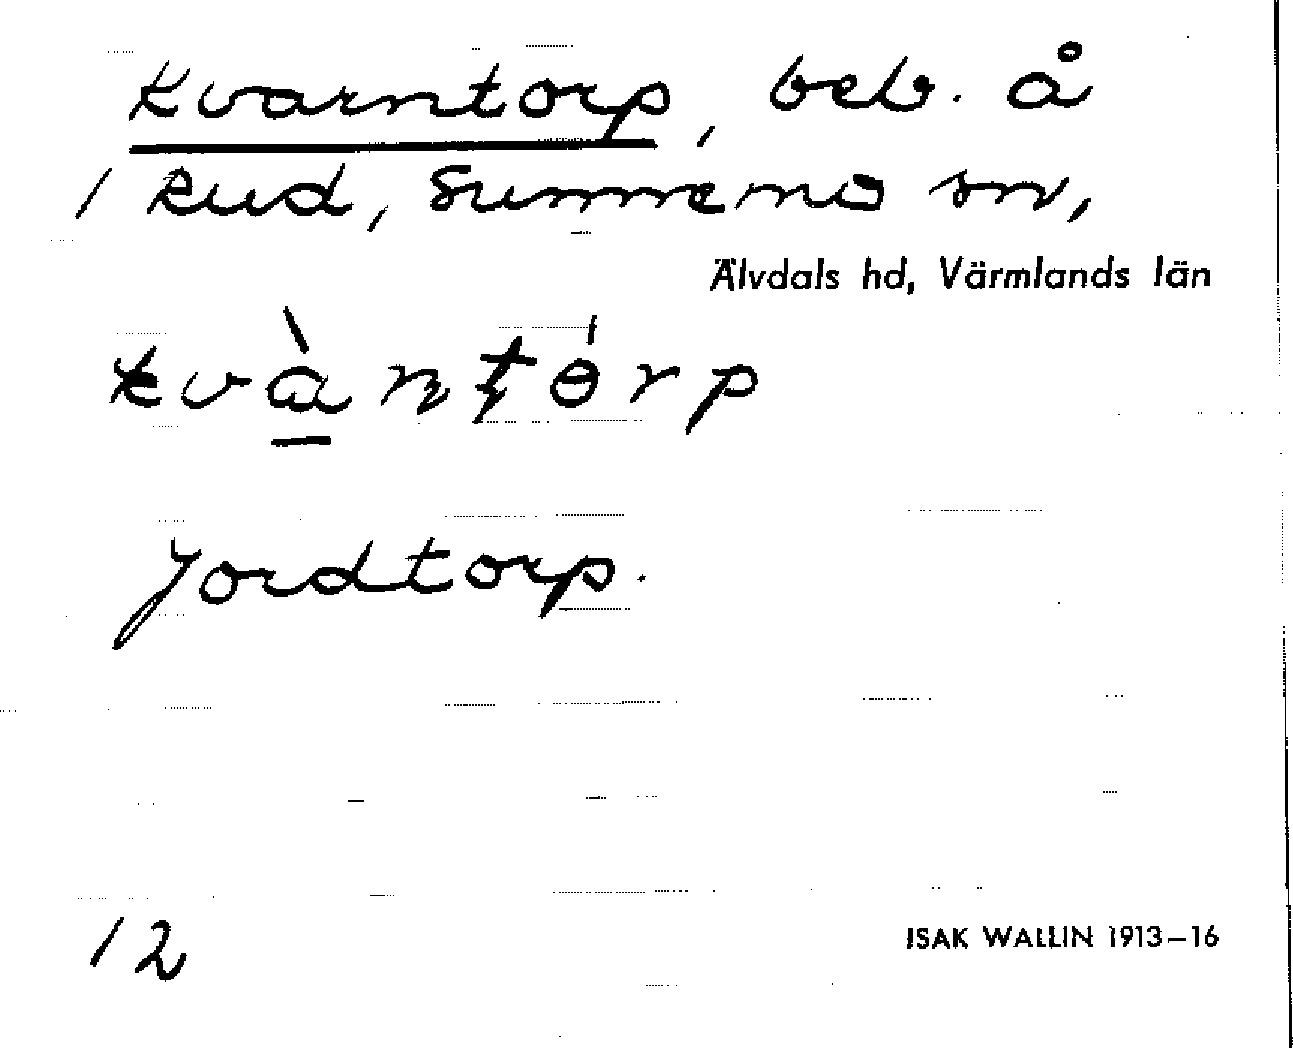 Kvarntorp, beb. å
1 Rud, Sunnemo sn,
Älvdals hd, Värmlands län
kvàntɵ́rp
Jordtorp.
12
ISAK WALLIN 1913–16